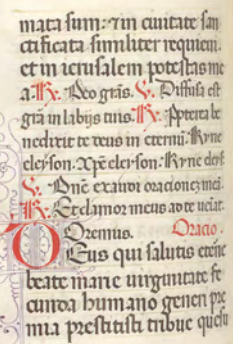 mata sum: Et in ciuitate san
ctificata similiter requieui.
et in ierusalem potestas me
a. R. Deo grãs. V. Diffusa est
grã in labijs tuis. R. Propterea be
nedixit te deus in eternũ. Kyrie
eleyson. Xpẽ eleyson. Kyrie eleys̃
V. Dñe exaudi orationez meã.
R. Et clamor meus ad te ueniat.
Oremus. Oracio.
Deus qui salutis eterne
beate marie uirginitate fe
cunda humano generi pre
mia prestitisti tribue quesu